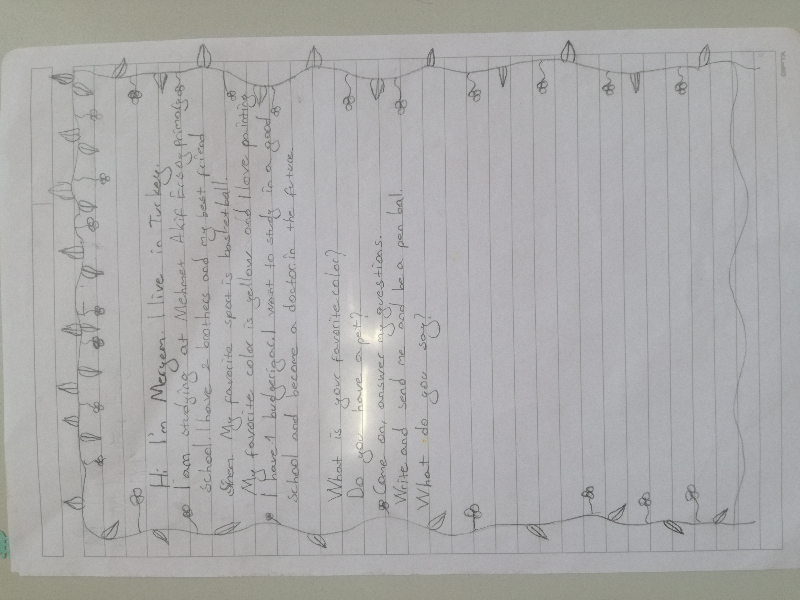 Hi I'm Meryem. I live in Turkey.
I am studying at Mehmet Akif Ersoy primary
school. I have 2 brothers and my best friend
My favorite spot is basketball.
My favorite color is yellow and I love painting
I have 1 budgerigar. I want to study in a good
school and become a doctor in the future
What is your favorite color?
Do you have a pet?
Come on, answer my questions.
Write and send me and be a pen bal.
What do you say?